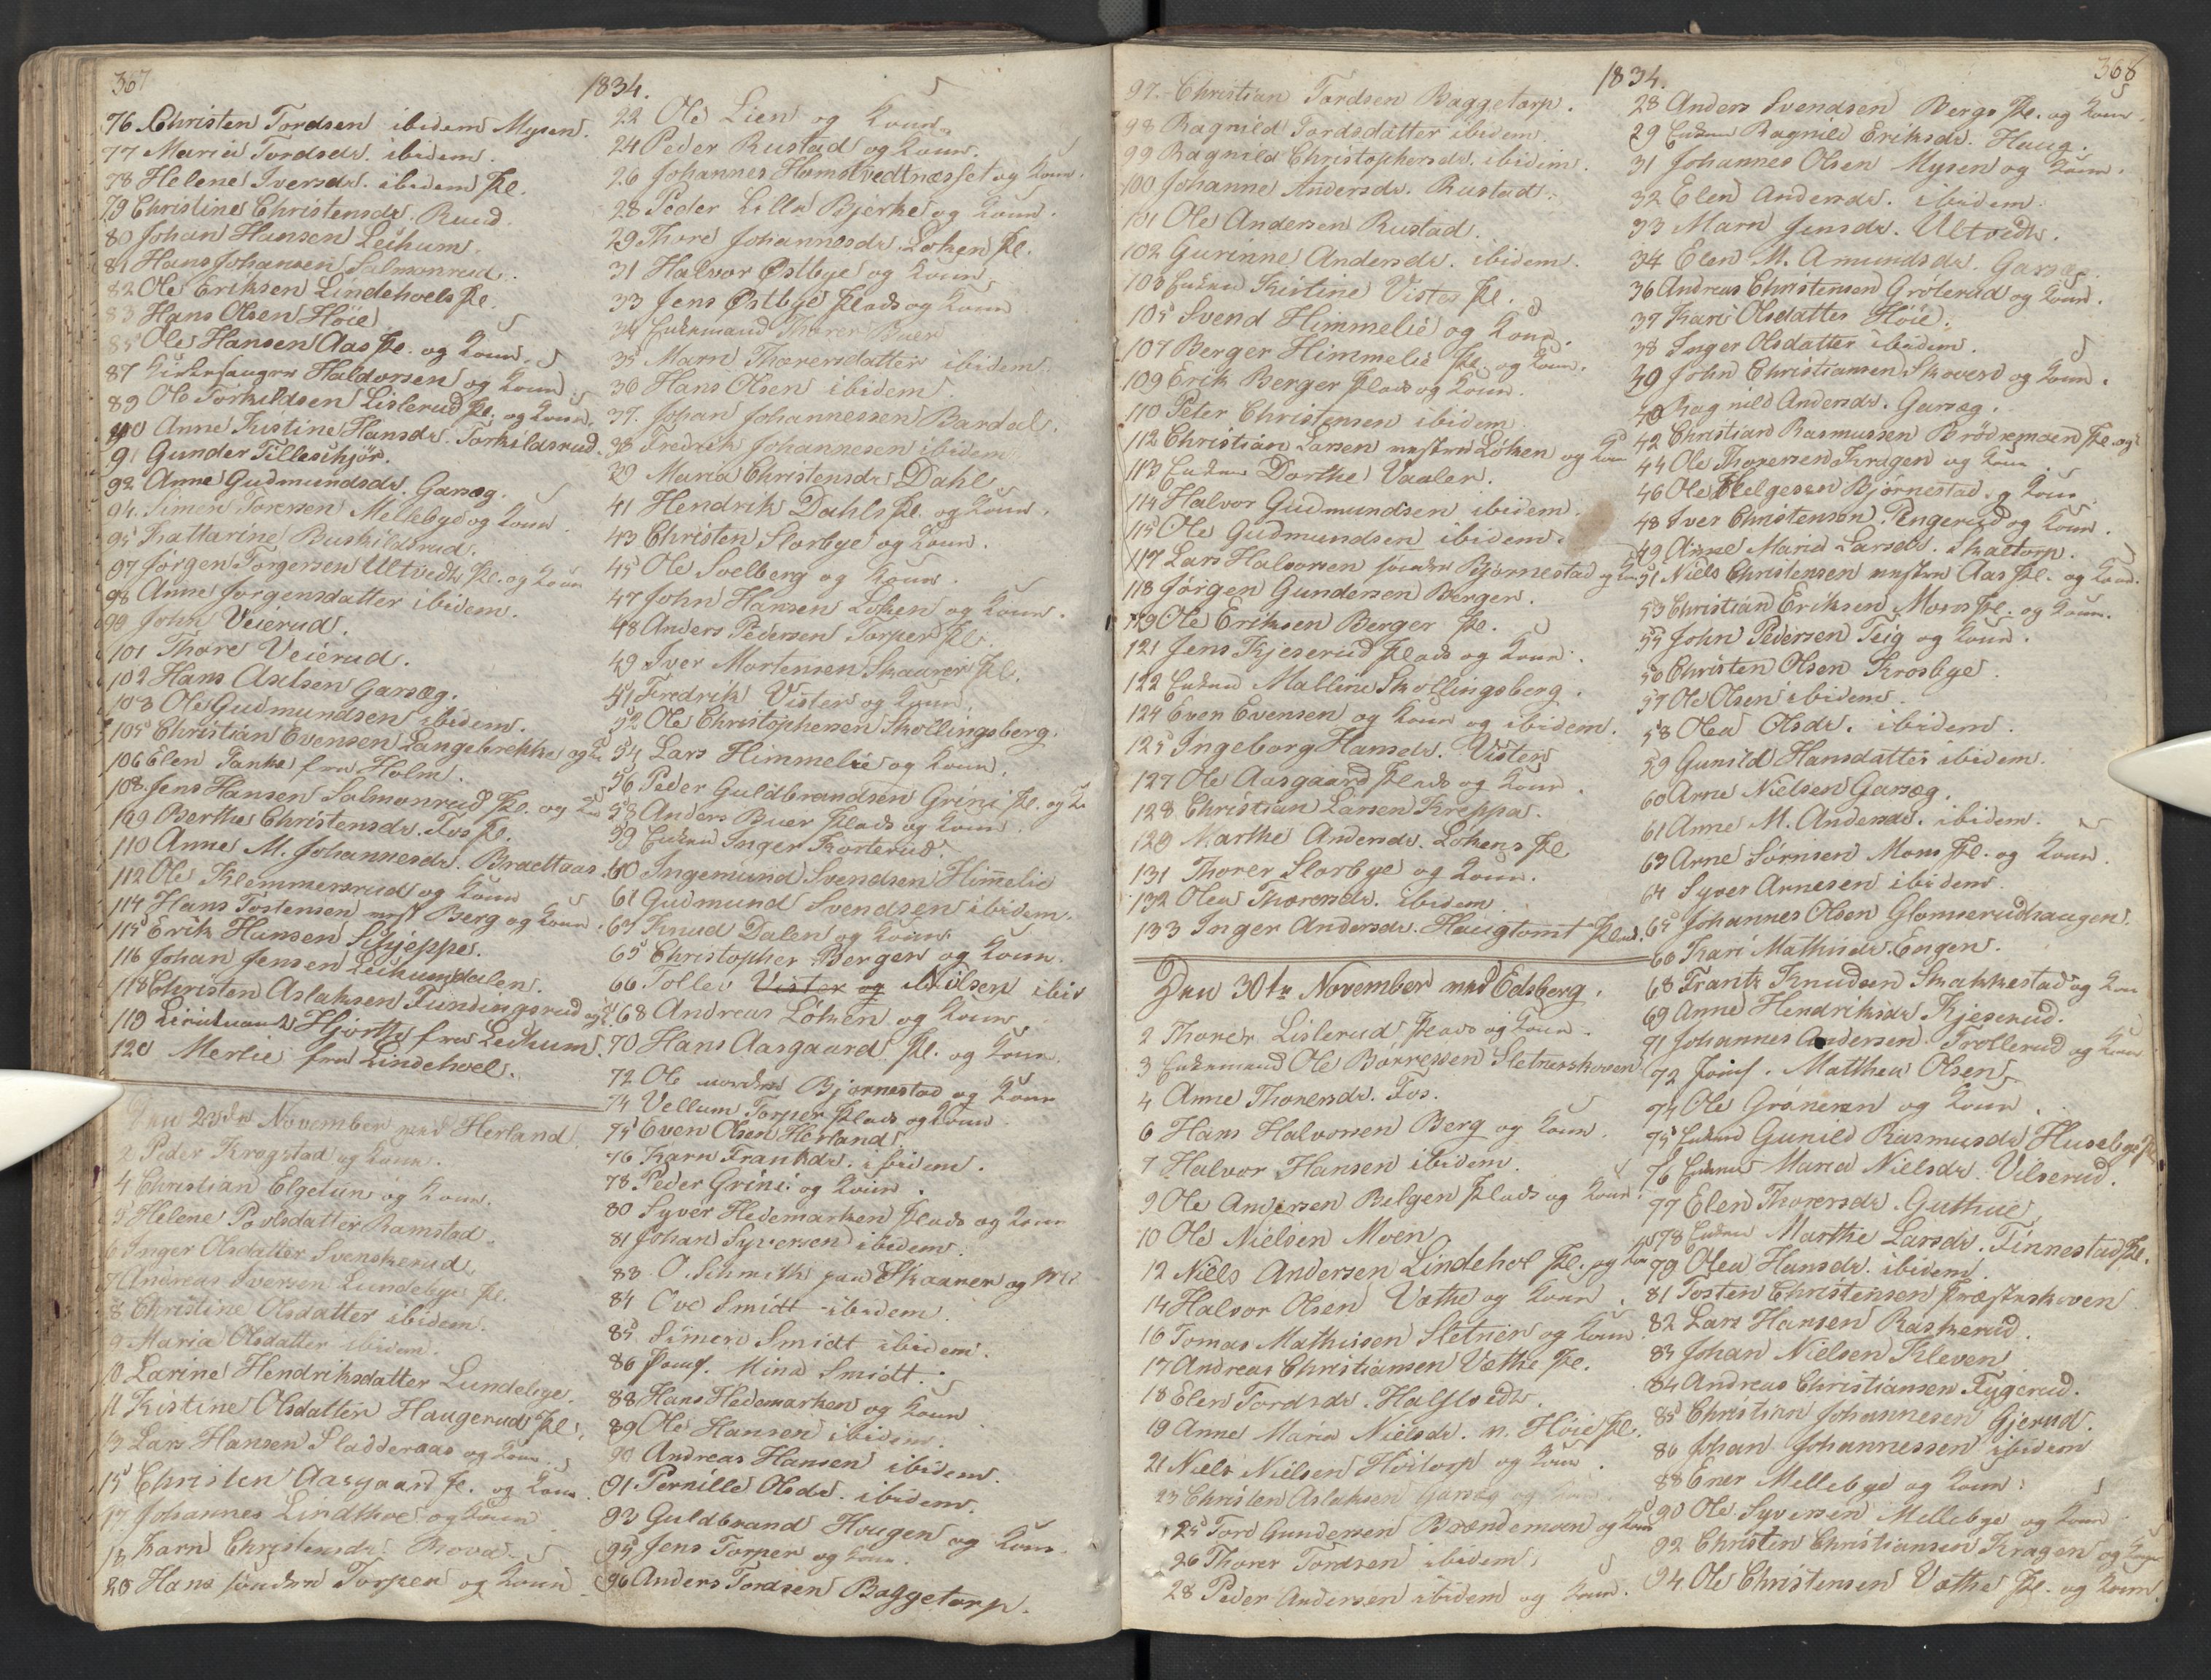 367
1834.
76 Christen Tordsen ibidem Mysen.
77 Maria Tordsdr. ibidem.
78 Helene Iversdr. ibidem Pl.
79 Christine Christensdr. Ruud.
80 Johan Hansen Leikum.
81 Hans Johansen Salmonrud.
82 Ole Eriksen Lindehoels Pl.
83 Hans Olsen Höie
85 Ole Hansen Aas Pl. og Kone.
87 Kirkesanger Haldorsen og Kone
89 Ole Torkildsen Lislerud Pl. og Kone.
90 Anne Kistine Hansdr. Torkildsrud.
91 Gunder Tilleskjör.
92 Anne Gudmundsdr. Garsæg.
94 Simen Toresen Mellebye og Kone
95 Kattarine Buskildsrud.
97 Jørgen Torgersen Ultvedt Pl. og Kone
98 Anne Jørgensdatter ibidem.
99 John Veierud.
101 Thore Veierud.
102 Hans Axelsen Garsæg.
103 Ole Gudmundsen ibidem.
105 Christian Evensen Langebrekke og K
106 Elen Tanke fra Holm.
108 Jens Hansen Salmonrud Pl. og Kone
109 Berthe Christensdr. Fos Pl.
110 Anne M. Johannesdr. Braattaas.
112 Ole Klemmersrud og Kone
114 Hans Tostensen Berg og Kone
115 Erik Hansen Skjeppe.
116 Johan Jensen Leikumsdalen.
118 Christen Aslaksen Tundingsrud og K
119 Hjorth fra Leikum.
120 Merlie fra Lindehoel.
Den 23de November ved Herland
2 Peder Kragstad og Kone.
4 Christian Elgetun og Kone.
5 Helene Povlsdatter Ramstad.
6 Inger Olsdatter Svenskerud
7 Andreas Iversen Lundebye Pl.
8 Christine Olsdatter ibidem.
9 Maria Olsdatter ibidem.
10 Larine Hendriksdatter Lundebye
11 Kistine Olsdatter Haugerud Pl.
13 Lars Hansen Sladderaas og Kone
15 Christen Aasgaard Pl. og Kone.
17 Johannes Lindhoe og Kone
18 Karn Christensdr. Rova
20 Hans söndre Torper og Kone
22 Ole Lien og Kone
24 Peder Rustad og Kone.
26 Johannes Homstvedtnæsset og Kone.
28 Peder Lille Bjerke og Kone.
29 Thore Johannesdr. Løken Pl.
31 Halvor Østbye og Kone
33 Jens Østbye Plads og Kone
34 Enkemand Thorer Buer
35 Marn Thorersdatter ibidem
36 Hans Olsen ibidem
37. Johan Johannessen Bardal.
38 Fredrik Johannesen ibidem
39 Maria Christensdr. Dahl
41 Hendrik Dahls Pl. og Kone.
43 Christen Slorbye og Kone.
45 Ole Solberg og Kone.
47 John Hansen Løken og Kone.
48 Anders Pedersen Torper Pl.
49 Iver Mortensen Skaurer Pl.
51 Fredrik Vister og Kone.
52 Ole Christophersen Skollingsberg.
54 Lars Himmelie og Kone.
56 Peder Guldbrandsen Grini Pl. og K
58 Anders Buer Plads og Kone.
59 Enken Inger Korterud.
60 Ingemund Svendsen Himelie
61 Gudmund Svendsen ibidem.
63 Knud Dalen og Kone
65 Christopher Berger og Kone.
66 Tollev Vister og Nilsen ibid
68 Andreas Löken og Kone
70 Hans Aasgaard Pl. og Kone.
72 Ole nordre Bjørnestad og Kone
74 Vellum Torper Plads og Kone
75 Even Olsen Herland
76 Karn Frantsdr. ibidem.
78 Peder Grini og Kone.
80 Syver Hedemarken Plads og Kone
81 Johan Syversen ibidem.
83 O. Schmith paa Skaarer og
84 Ove Smidt ibidem
85 Simen Smidt ibidem.
86 Jomf. Mina Smidt.
88 Hans Hedemarken og Kone
89 Ole Hansen ibidem.
90 Andreas Hansen ibidem.
91 Pernille Olsdr. ibidem.
93 Guldbrand Hougen og Kone.
95 Jens Torper og Kone.
96 Anders Tordsen Baggetorp.
1834.
368
97. Christian Tordsen Baggetorp.
98 Ragnild Tordsdatter ibidem
99 Ragnild Christophersdr. ibidem.
100 Johanne Andersdr. Rustad.
101 Ole Andersen Rustad.
102 Gurinne Andersdr. ibidem.
103 Enken Kistine Vister Pl.
105 Svend Himmelie og Kone.
107 Berger Himmelie Pl. og Kone.
109 Erik Berger Plads og Kone.
110 Peter Christensen ibidem
112 Christian Larsen mestre Löken og Kone
113 Enken Dorthe Vaaler.
114 Halvor Gudmundsen ibidem.
115 Ole Gudmundsen ibidem.
117 Lars Halvorsen söndre Bjørnestad og K
118 Jørgen Gundersen Berger.
119 Ole Eriksen Berger Pl.
121 Jens Kjeserud Plads og Kone.
122 Enken Malline Skollingsberg.
124 Even Evensen og Kone og ibidem.
125 Ingeborg Hansdr. Vister
127 Ole Aasgaard Plads og Kone.
128 Christian Larsen Kreppa.
129 Marthe Andersdr. Lökens Pl.
131 Thorer Slorbye og Kone.
132 Olea Thorersdr. ibidem
133 Inger Andersdr. Haugtomt Plads.
Den 30te November ved Edsberg.
2 Thorer Lislerud Plads og Kone.
3 Enkemand Ole Börresen Sletnerskoven
4 Anne Thorersdr. Fos.
6 Hans Halvorsen Berg og Kone
7 Halvor Hansen ibidem.
9 Ole Andersen Belgen Plads og Kone.
10 Ole Nielsen Moen
12 Niels Andersen Lindehol Pl. og Kone
14 Halvor Olsen Væthe og Kone.
16 Tomas Mathisen Sletner og Kone
17 Andreas Christiansen Væthe Pl.
18 Elen Tordsdr. Halfsvedt.
19 Anne Maria Nielsdr. n. Höie Pl.
21 Niels Nielsen Höitorp og Kone.
23 Christen Aslaksen Garsæg og Kone.
25 Tord Gundersen Brændemoen og Kone
26 Thorer Tordsen ibidem.
28 Peder Andersen ibidem og Kone.
28 Anders Svendsen Bergs Pl. og Kone.
29 Enken Ragnild Eriksdr. Haug.
31 Johannes Olsen Mysen og Kone.
32 Elen Andersdr. ibidem.
33 Marn Jensdr. Ultvedt.
34 Elen M. Amundsdr. Garsæg.
36 Andreas Christensen Grølerud og Kone.
37 Kari Olsdatter Höie.
38 Inger Olsdatter ibidem.
39 John Christiansen Skovero og Kone.
40 Ragnild Andersdr. Garsæg.
42 Christian Rasmussen Brödremoen Pl. og
44 Ole Thoresen Kragen og Kone
46 Ole Helgesen Bjørnestad og Kone
48 Iver Christensen Pengerud og Kone.
49 Anne Maria Larsdr. Skaltorp.
51 Niels Christensen mestre Aas Pl. og Kone.
53 Christian Eriksen Mons Pl. og Kone.
55 John Pedersen Teig og Kone.
56 Christen Olsen Krosbye
57 Ole Olsen ibidem
58 Olea Olsdr. ibidem.
59 Gunild Hansdatter ibidem.
60 Arne Nielsen Garsæg.
61 Anne M. Andersdr. ibidem.
63 Arne Sørnsen Mons Pl. og Kone.
64 Syver Arnesen ibidem.
65 Johannes Olsen Glomserudhaugen.
66 Kari Mathisdr. Engen.
68 Frantz Knudsen Skakkestad og Kone
69 Anne Hendriksdr. Kjeserud.
71 Johannes Andersen Trollerud og Kone
72 Jomf. Matthea Olsen
74 Ole Gröneren og Kone.
75 Enken Gunild Rasmusdr. Husebye Pl.
76 Enken Maria Nielsdr. Vilserud.
77 Elen Thorersdr. Guthue
78 Enken Marthe Larsdr. Finnestad Pl.
79 Olea Hansdr. ibidem
81 Tosten Christensen Præsteskoven
82 Lars Hansen Raskerud.
83 Johan Nielsen Kleven
84 Andreas Christiansen Tygerud.
85 Christian Johannesen Gjerud.
86 Johan Johannessen ibidem
88 Ener Mellebye og Kone.
90 Ole Syversen Mellebye og Kone
92 Christen Christiansen Kragen og Kone
94 Ole Christensen Væthe Pl. og Kone.